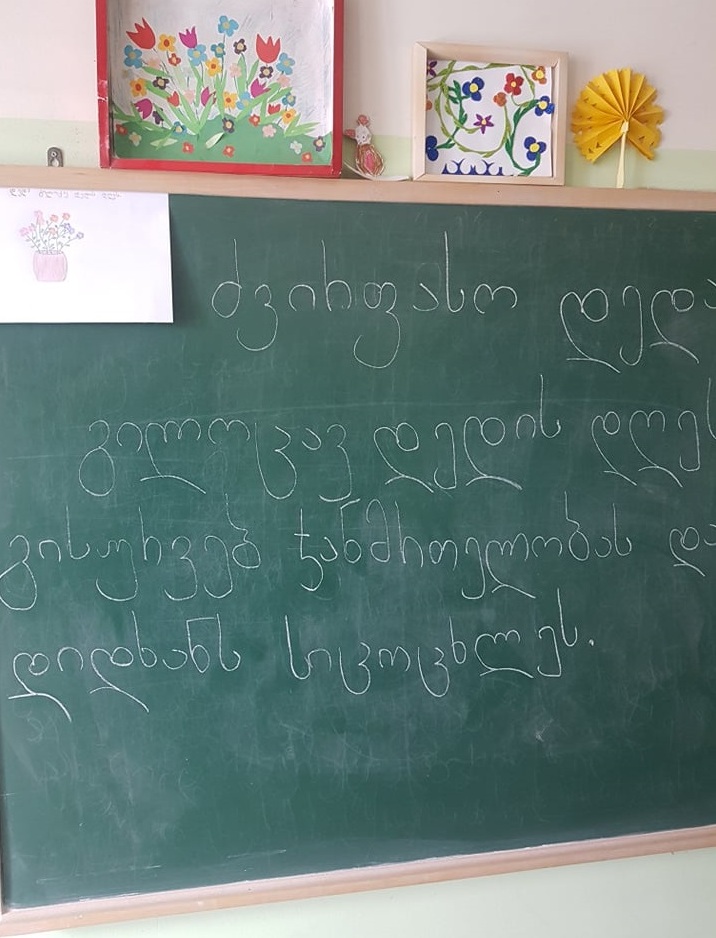 ძვირფასო დედა
გილოცავ დედის დღეს
გისურვებ ჯანმრთელობას და
დიდხანს სიცოცხლეს.